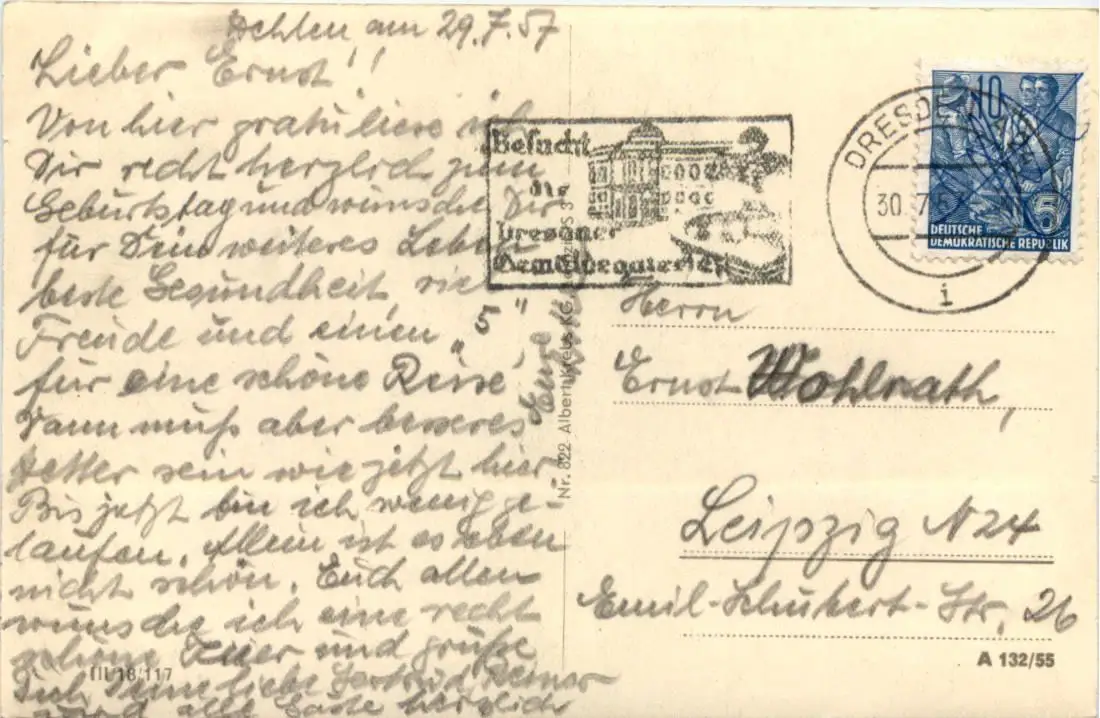 am 29.7.57
Lieber Ernst!!
Von hier gratuliere ich
Dir recht herzlich zum
Geburtstag und wünsche Dir
für Dein weiteres Leben
beste Gesundheit, viel
Freude und einen „5“
für eine schöne Reise
Dann muß aber besseres
Wetter sein wie jetzt hier
Bis jetzt bin ich wenig ge-
laufen. Allein ist es eben
nicht schön. Euch allen
wünsche ich eine recht
schöne Feier und grüße
Dich Deine liebe Gertrud
und alle Gäste herzlich
Eure
Besucht
die
Dresdner
Gemäldegalerie
DRESDEN
30.7.57
i
10
5
DEUTSCHE
DEMOKRATISCHE REPUBLIK
Herrn
Ernst Wohlrath,
Leipzig N24
Emil-Schubert-Str. 26
Nr. 822 Albert Krebs KG.
III/18/117
A 132/55